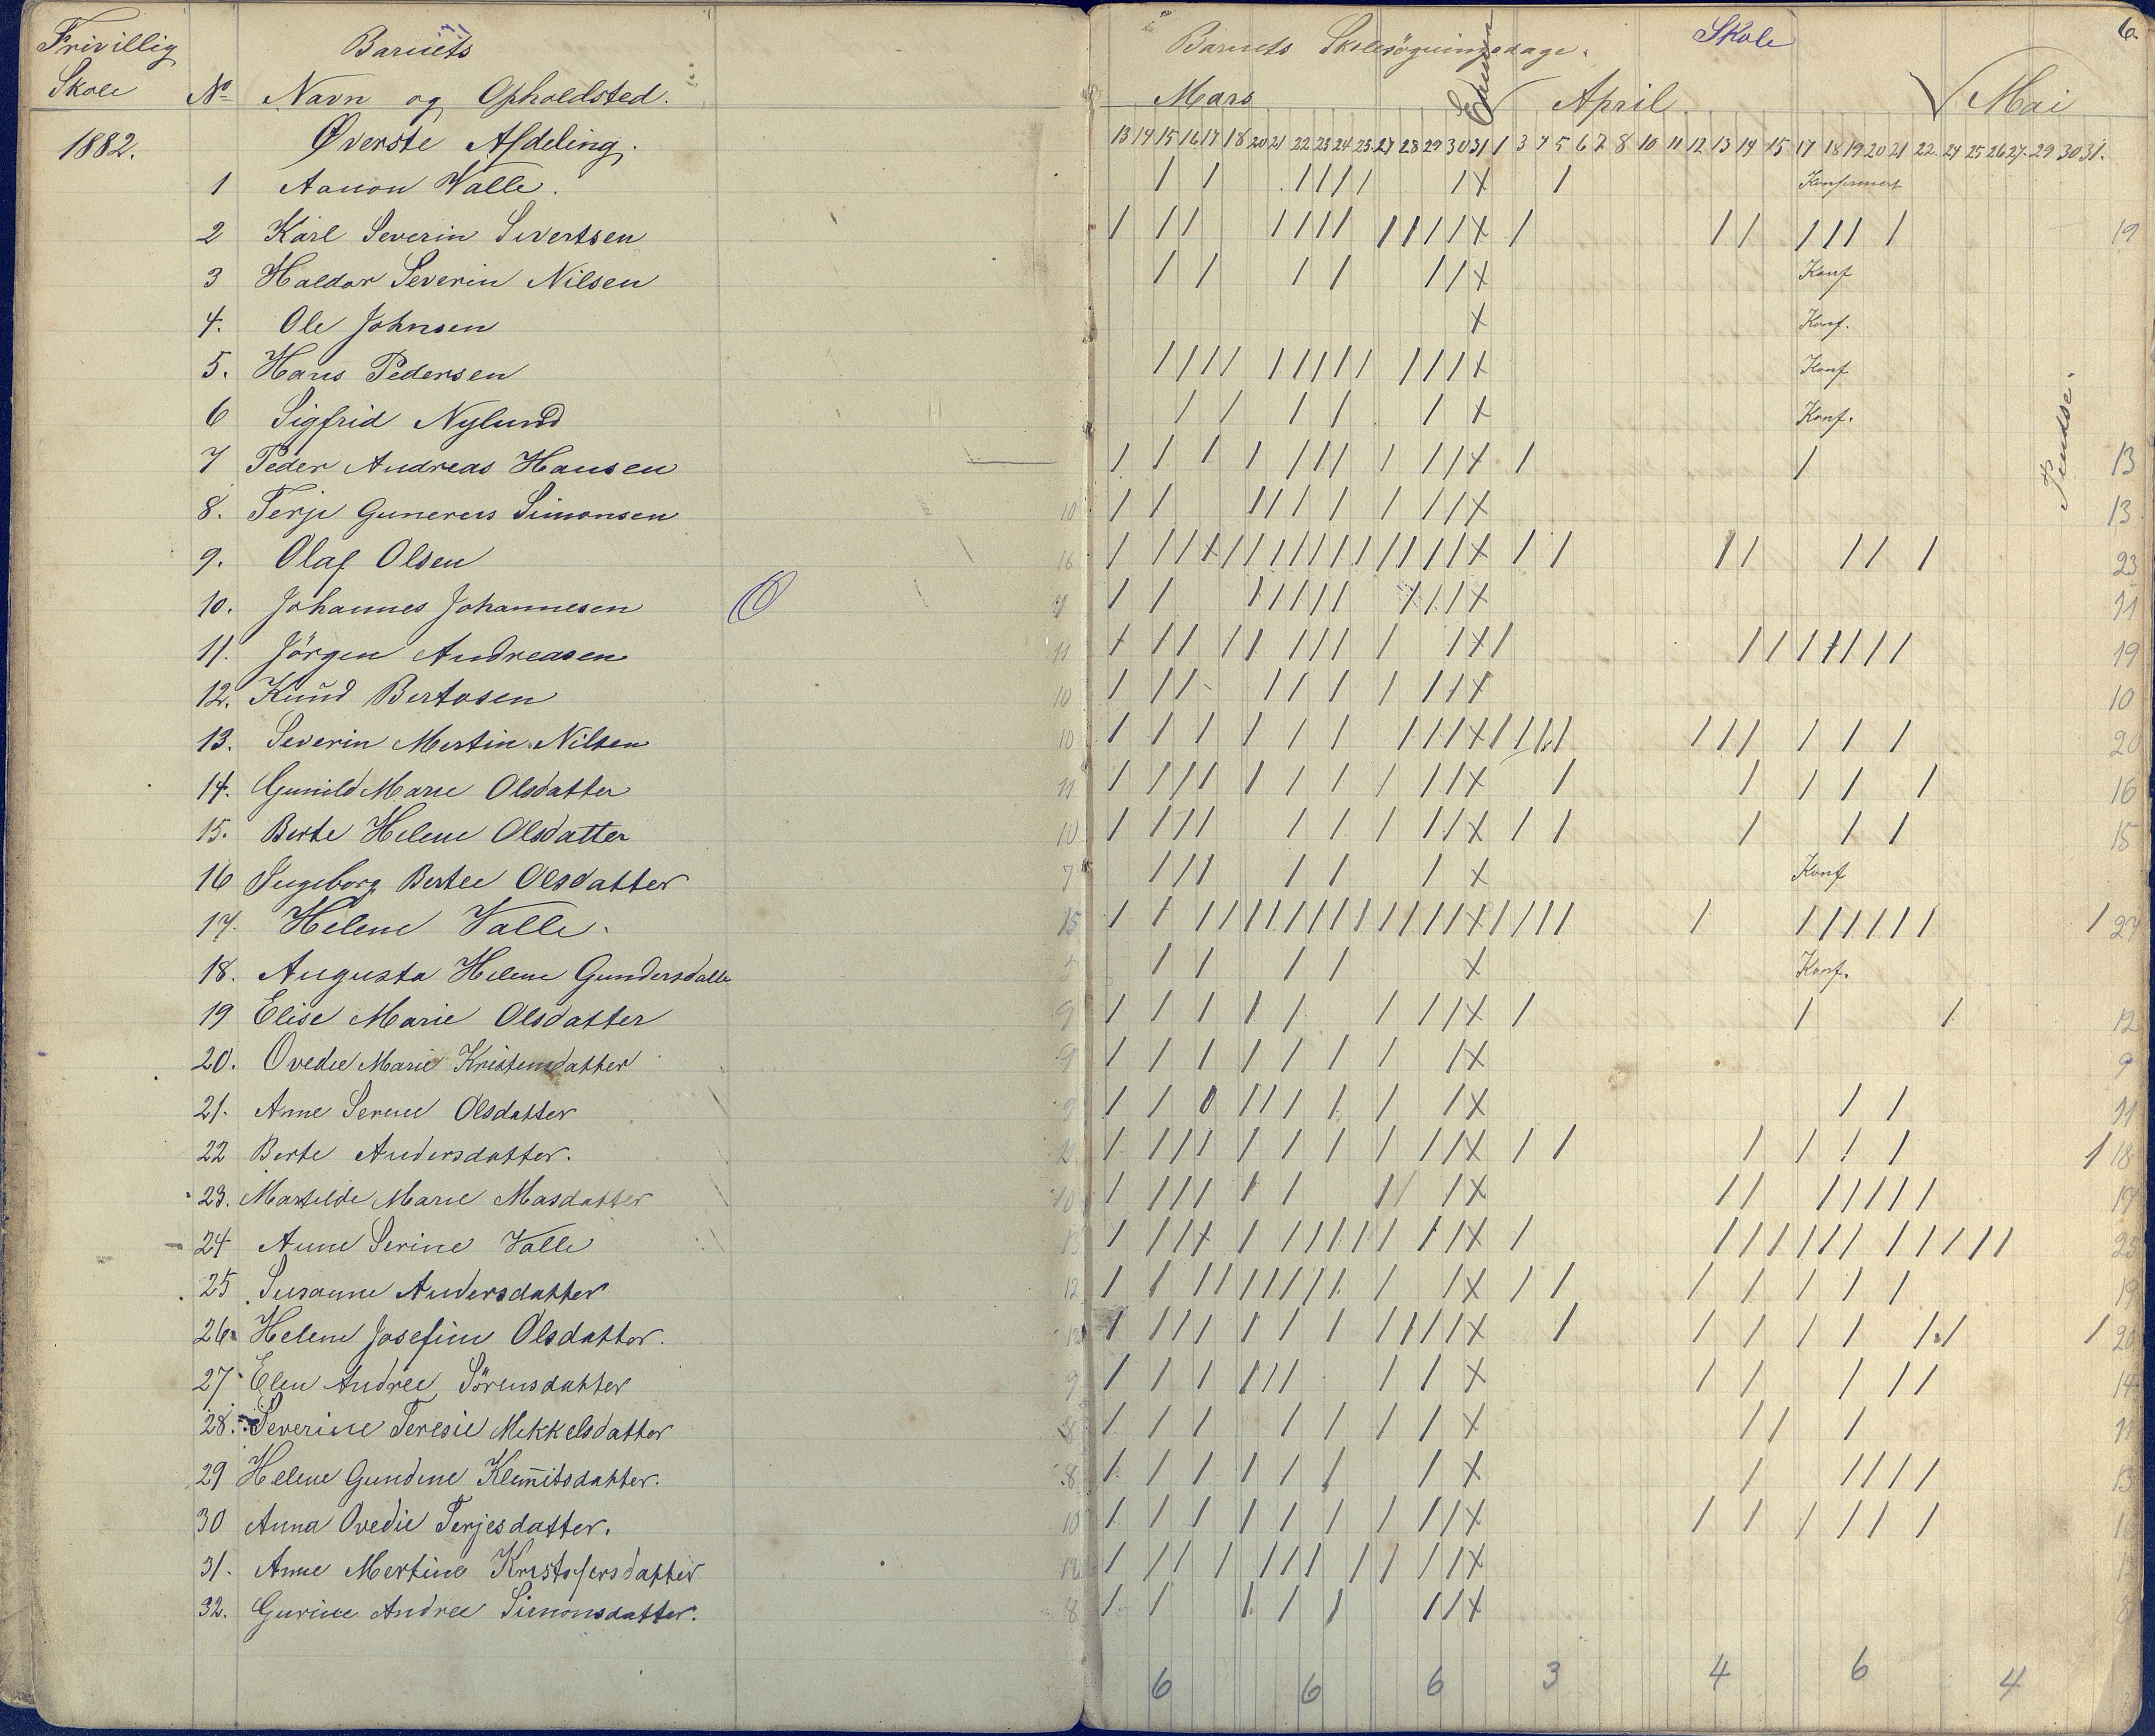 Frivillig
Skole
1882.
Barnets
No Navn og Opholdsted.
Øverste Afdeling.
1 Aanon Valle.
2 Karl Severin Sivertsen
3 Haldor Severin Nilsen
4. Ole Johnsen
5. Hans Pedersen
6 Sigfrid Nylund
7 Peder Andreas Hansen
8. Terje Gunerius Simonsen
9. Olaf Olsen
10. Johannes Johannesen
11. Jörgen Andreasen
12. Knud Bertosen
13. Severin Mertin Nilsen
14. Gunild Marie Olsdatter
15. Berte Helene Olsdatter
16 Ingeborg Bertee Olsdatter
17. Helene Valle.
18. Augusta Helene Gundersdatter
19 Elise Marie Olsdatter
20. Ovedie Marie Kristensdatter
21. Anne Serine Olsdatter
22 Berte Andersdatter.
23. Martilde Marie Masdatter
24 Anne Serine Valle
25 Susanne Andersdatter
26. Helene Josefine Olsdatter.
27. Elen Andree Sörensdatter
28. Severine Teresie Mikkelsdatter
29 Helene Gundine Klemitsdatter.
30 Anna Ovedie Terjesdatter.
31. Anne Mertine Kristofersdatter
32. Gurine Andree Simonsdatter.
Barnets Skolesögningsdage. Skole 6.
Mars Examen April Mai
13 14 15 16 17 18 20 21 22 23 24 25 27 28 29 30 31 1 3 4 5 6 7 8 10 11 12 13 14 15 17 18 19 20 21 22 24 25 26 27 29 30 31.
Konfirmert
19
Konf
Konf.
Konf
Konf.
13
10 13
16 23
11
11 19
10 10
10 20
11 16
10 15
7 Konf
15 27
5 Konf.
9 12
9 9
9 11
18
10 17
13 25
12 19
13 20
9 14
8 11
8 13
10 16
12
8 8
6 6 6 3 4 6 4